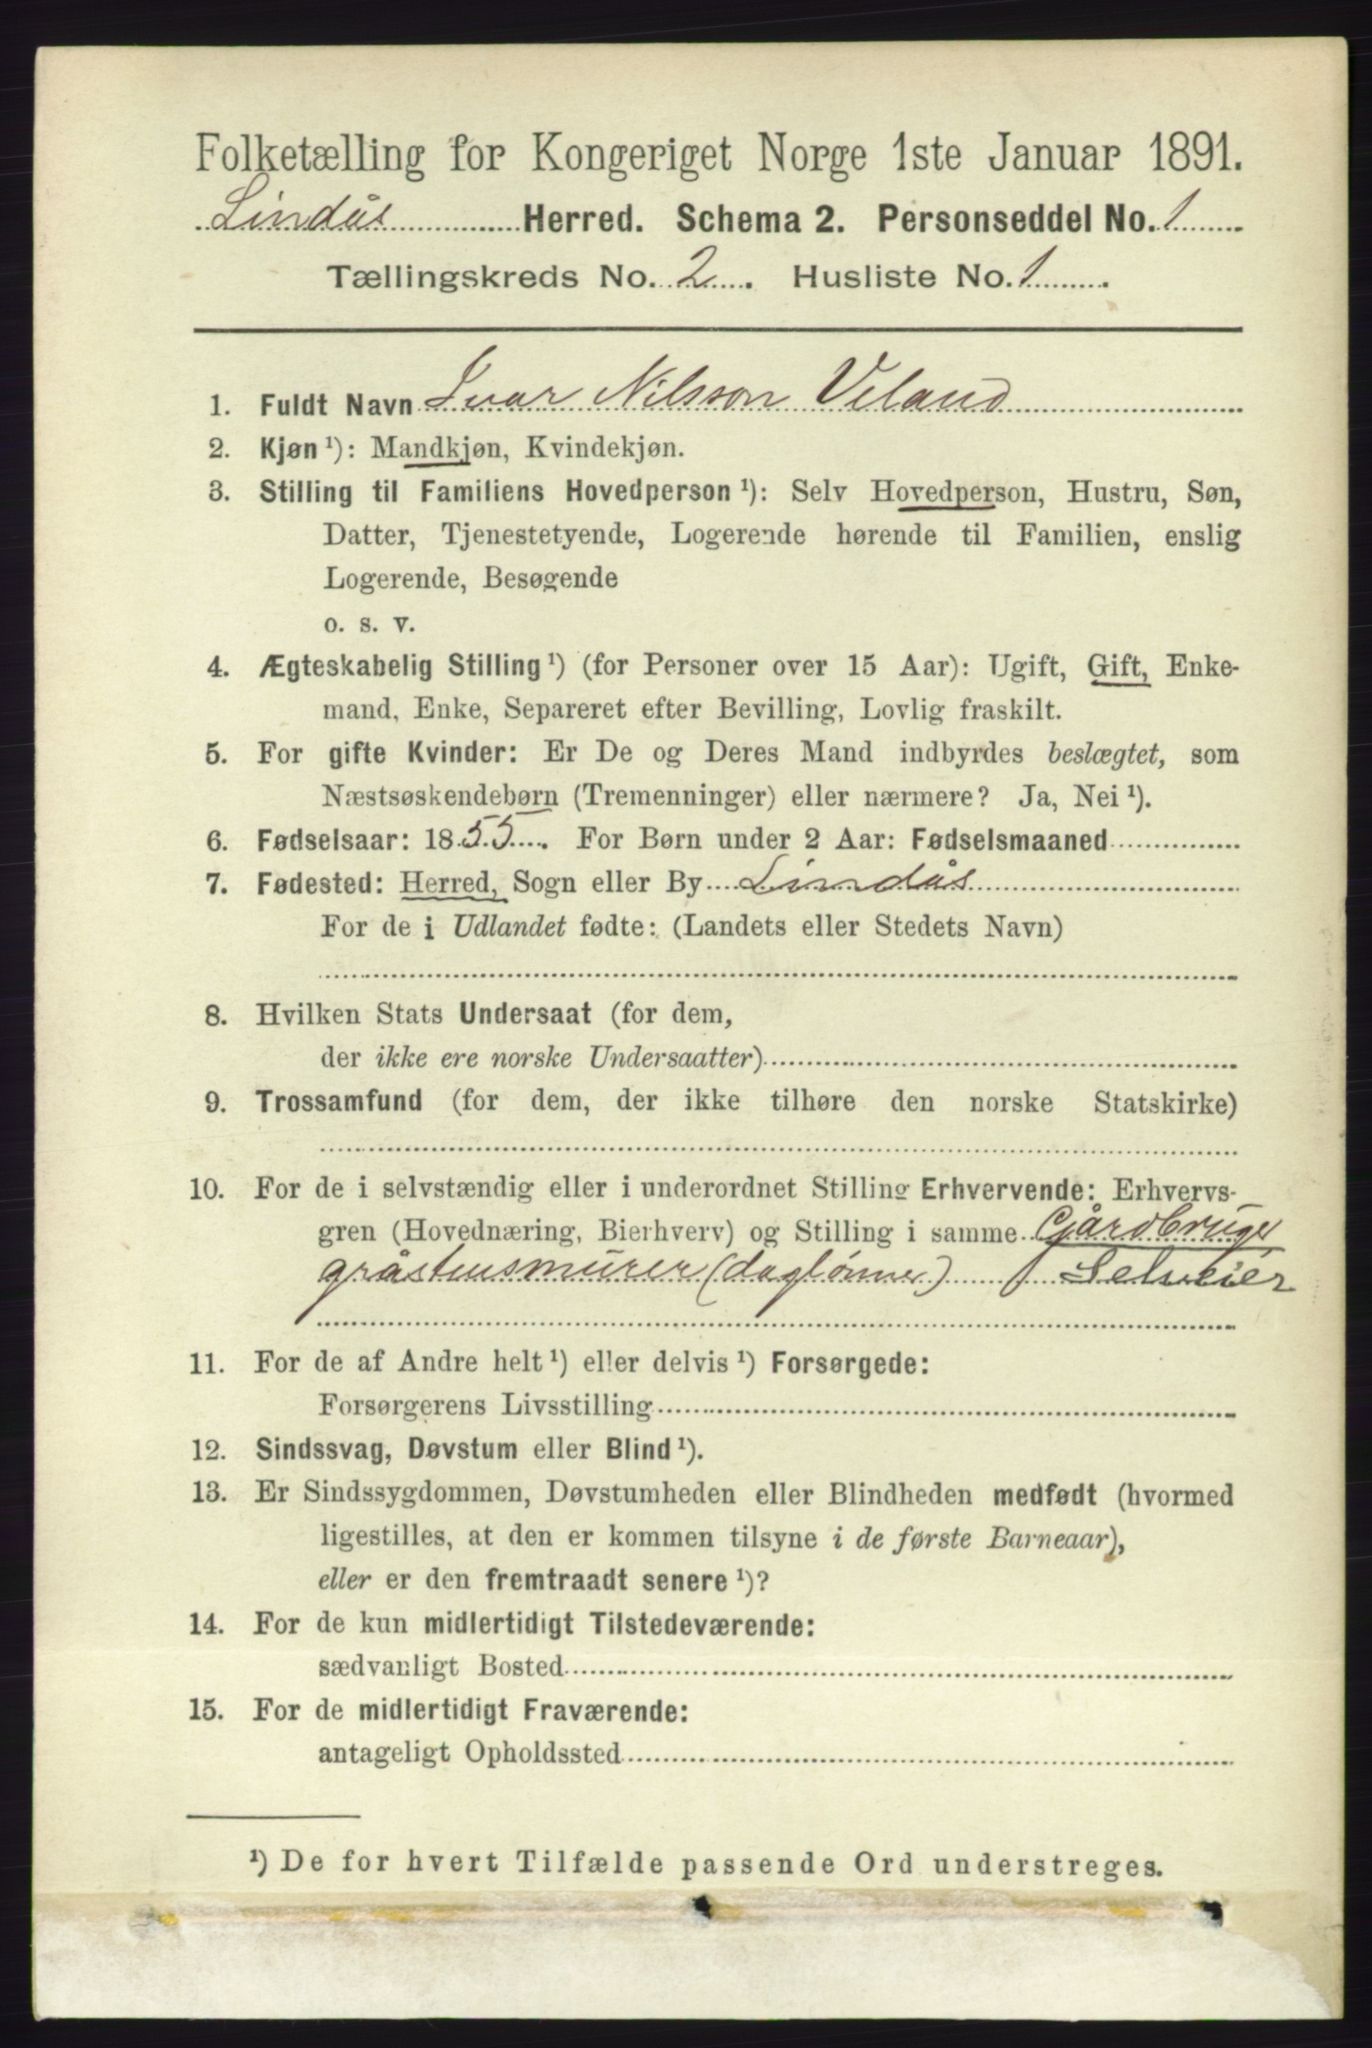 Folketælling for Kongeriget Norge 1ste Januar 1891.
Lindås Herred. Schema 2. Personseddel No. 1
Tællingskreds No. 2. Husliste No. 1.
1. Fuldt Navn Ivar Nilsson Veland
2. Kjøn ¹): Mandkjøn, Kvindekjøn.
3. Stilling til Familiens Hovedperson ¹): Selv Hovedperson, Hustru, Søn,
Datter, Tjenestetyende, Logerende hørende til Familien, enslig
Logerende, Besøgende
o. s. v.
4. Ægteskabelig Stilling ¹) (for Personer over 15 Aar): Ugift, Gift, Enke-
mand, Enke, Separeret efter Bevilling, Lovlig fraskilt.
5. For gifte Kvinder: Er De og Deres Mand indbyrdes beslægtet, som
Næstsøskendebørn (Tremenninger) eller nærmere? Ja, Nei ¹).
6. Fødselsaar: 1855. For Børn under 2 Aar: Fødselsmaaned
7. Fødested: Herred, Sogn eller By Lindås
For de i Udlandet fødte: (Landets eller Stedets Navn)
8. Hvilken Stats Undersaat (for dem,
der ikke ere norske Undersaatter)
9. Trossamfund (for dem, der ikke tilhøre den norske Statskirke)
10. For de i selvstændig eller i underordnet Stilling Erhvervende: Erhvervs-
gren (Hovednæring, Bierhverv) og Stilling i samme Gårdbruger
gråstensmurer (daglønner) Selveier
11. For de af Andre helt ¹) eller delvis ¹) Forsørgede:
Forsørgerens Livsstilling
12. Sindssvag, Døvstum eller Blind ¹).
13. Er Sindssygdommen, Døvstumheden eller Blindheden medfødt (hvormed
ligestilles, at den er kommen tilsyne i de første Barneaar),
eller er den fremtraadt senere ¹)?
14. For de kun midlertidigt Tilstedeværende:
sædvanligt Bosted
15. For de midlertidigt Fraværende:
antageligt Opholdssted
¹) De for hvert Tilfælde passende Ord understreges.